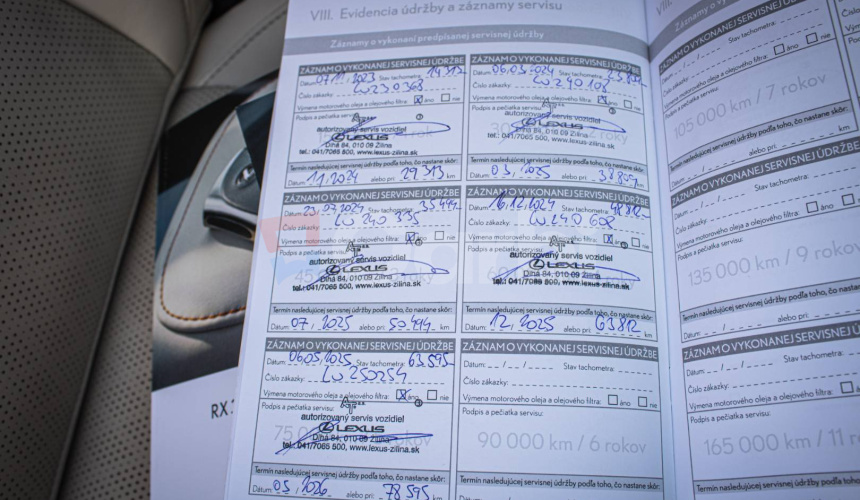 VIII. Evidencia údržby a záznamy servisu
Záznamy o vykonaní predpísanej servisnej údržby
ZÁZNAM O VYKONANEJ SERVISNEJ ÚDRŽBE
Dátum: 07.11.2023 Stav tachometra: 14 313
Číslo zákazky: LW230368
Výmena motorového oleja a olejového filtra: áno nie
Podpis a pečiatka servisu:
autorizovaný servis vozidiel
LEXUS
Dlhá 84, 010 09 Žilina
tel.: 041/7065 500, www.lexus-zilina.sk
Termín nasledujúcej servisnej údržby podľa toho, čo nastane skôr:
Dátum: 11.2024 alebo pri: 29 313 km
ZÁZNAM O VYKONANEJ SERVISNEJ ÚDRŽBE
Dátum: 06.03.2024 Stav tachometra:
Číslo zákazky: LW240108
Výmena motorového oleja a olejového filtra: áno nie
Podpis a pečiatka servisu:
autorizovaný servis vozidiel
LEXUS
Dlhá 84, 010 09 Žilina
tel.: 041/7065 500, www.lexus-zilina.sk
Termín nasledujúcej servisnej údržby podľa toho, čo nastane skôr:
Dátum: 03.2025 alebo pri: km
ZÁZNAM O VYKONANEJ SERVISNEJ ÚDRŽBE
Dátum: 23.07.2024 Stav tachometra: 35.444
Číslo zákazky: LW240335
Výmena motorového oleja a olejového filtra: áno nie
Podpis a pečiatka servisu:
autorizovaný servis vozidiel
LEXUS
Dlhá 84, 010 09 Žilina
tel.: 041/7065 500, www.lexus-zilina.sk
Termín nasledujúcej servisnej údržby podľa toho, čo nastane skôr:
Dátum: 07.2025 alebo pri: 50.444 km
ZÁZNAM O VYKONANEJ SERVISNEJ ÚDRŽBE
Dátum: 16.12.2024 Stav tachometra: 48812
Číslo zákazky: LW240602
Výmena motorového oleja a olejového filtra: áno nie
Podpis a pečiatka servisu:
autorizovaný servis vozidiel
LEXUS
Dlhá 84, 010 09 Žilina
tel.: 041/7065 500, www.lexus-zilina.sk
Termín nasledujúcej servisnej údržby podľa toho, čo nastane skôr:
Dátum: 12.2025 alebo pri: 63812 km
ZÁZNAM O VYKONANEJ SERVISNEJ ÚDRŽBE
Dátum: 06.05.2025 Stav tachometra: 63.595
Číslo zákazky: LW250254
Výmena motorového oleja a olejového filtra: áno nie
Podpis a pečiatka servisu:
autorizovaný servis vozidiel
LEXUS
Dlhá 84, 010 09 Žilina
tel.: 041/7065 500, www.lexus-zilina.sk
Termín nasledujúcej servisnej údržby podľa toho, čo nastane skôr:
Dátum: 05.2026 alebo pri: 78 595 km
ZÁZNAM O VYKONANEJ SERVISNEJ ÚDRŽBE
Dátum: Stav tachometra:
Číslo zákazky:
Výmena motorového oleja a olejového filtra: áno nie
Podpis a pečiatka servisu:
90 000 km / 6 rokov
Termín nasledujúcej servisnej údržby podľa toho, čo nastane skôr:
Dátum: alebo pri: km
VIII.
Záznamy o vykonaní
ZÁZNAM O VYKONANEJ SERVISNEJ
Dátum: Stav tachometra:
Číslo zákazky:
Výmena motorového oleja a olejového filtra: áno
Podpis a pečiatka servisu:
105 000 km / 7 rokov
Termín nasledujúcej servisnej údržby podľa toho, čo
Dátum: alebo pri:
ZÁZNAM O VYKONANEJ SERVISNEJ
Dátum: Stav tachometra:
Číslo zákazky:
Výmena motorového oleja a olejového filtra:
Podpis a pečiatka servisu:
135 000 km / 9 rokov
Termín nasledujúcej servisnej údržby podľa toho, čo nastane
Dátum: alebo pri:
ZÁZNAM O VYKONANEJ SERVISNEJ
Dátum: Stav tachometra:
Číslo zákazky:
Výmena motorového oleja a olejového filtra:
Podpis a pečiatka servisu:
165 000 km / 11
Termín nasledujúcej servisnej údržby podľa toho, čo
Dátum:
RX